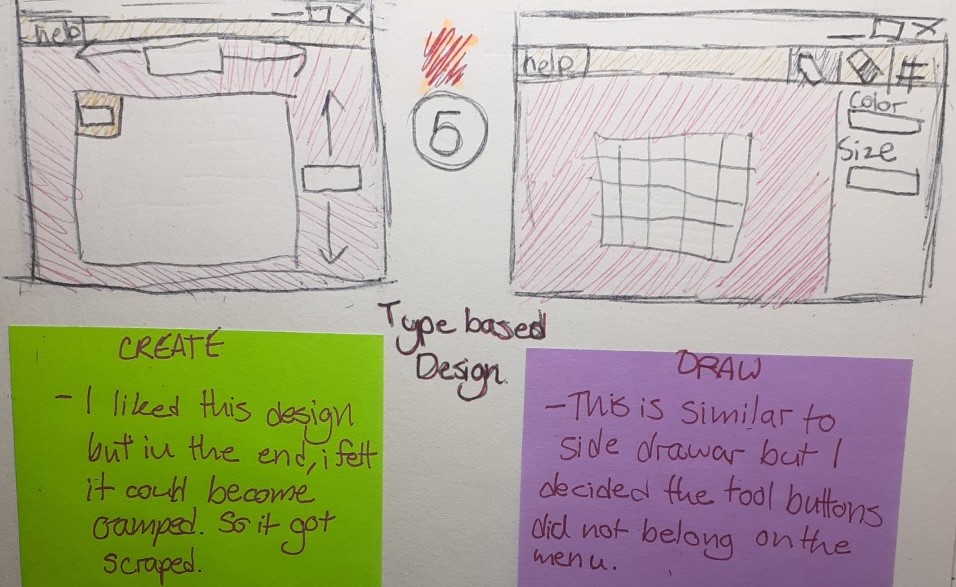 help
5
help
#
Color
Size
Type based
Design.
CREATE
- I liked this design
but in the end, i felt
it could become
cramped. So it got
scraped.
DRAW
- This is similar to
side drawar but I
decided the tool buttons
did not belong on the
menu.